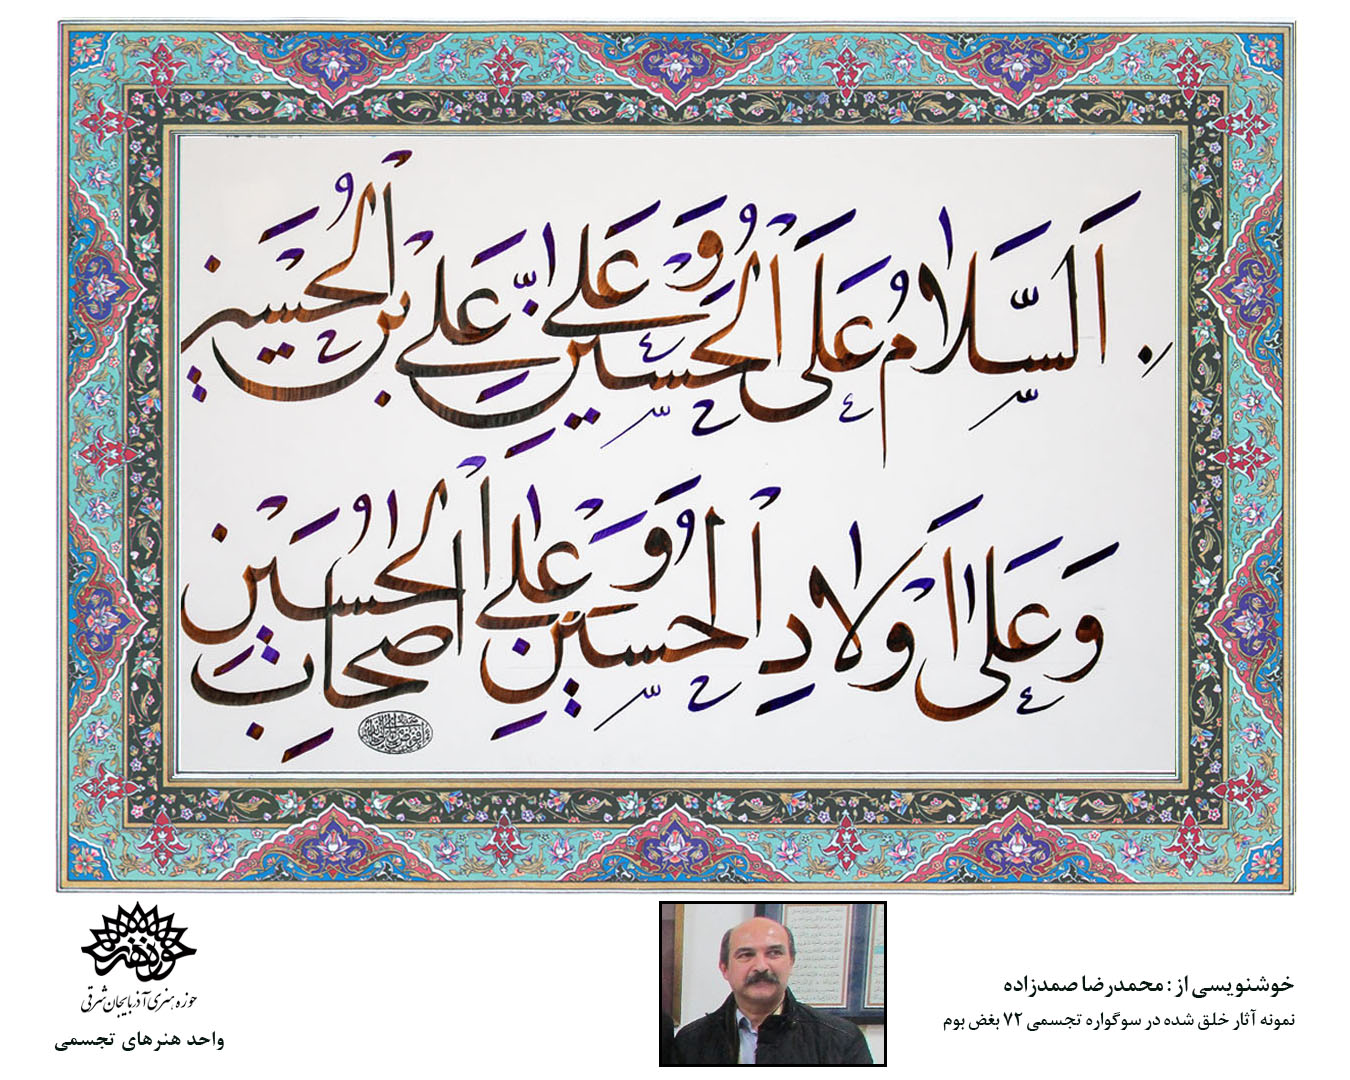 اَلسَّلامُ عَلَى الْحُسَيْنِ وَ عَلى عَلِيِّ بْنِ الْحُسَيْنِ
وَ عَلى اَوْلادِ الْحُسَيْنِ وَ عَلى اَصْحابِ الْحُسَيْنِ
خوشنویسی از : محمدرضا صمدزاده
نمونه آثار خلق شده در سوگواره تجسمی ۷۲ بغض بوم
حوزه هنری
حوزه هنری آذربایجان شرقی
واحد هنرهای تجسمی